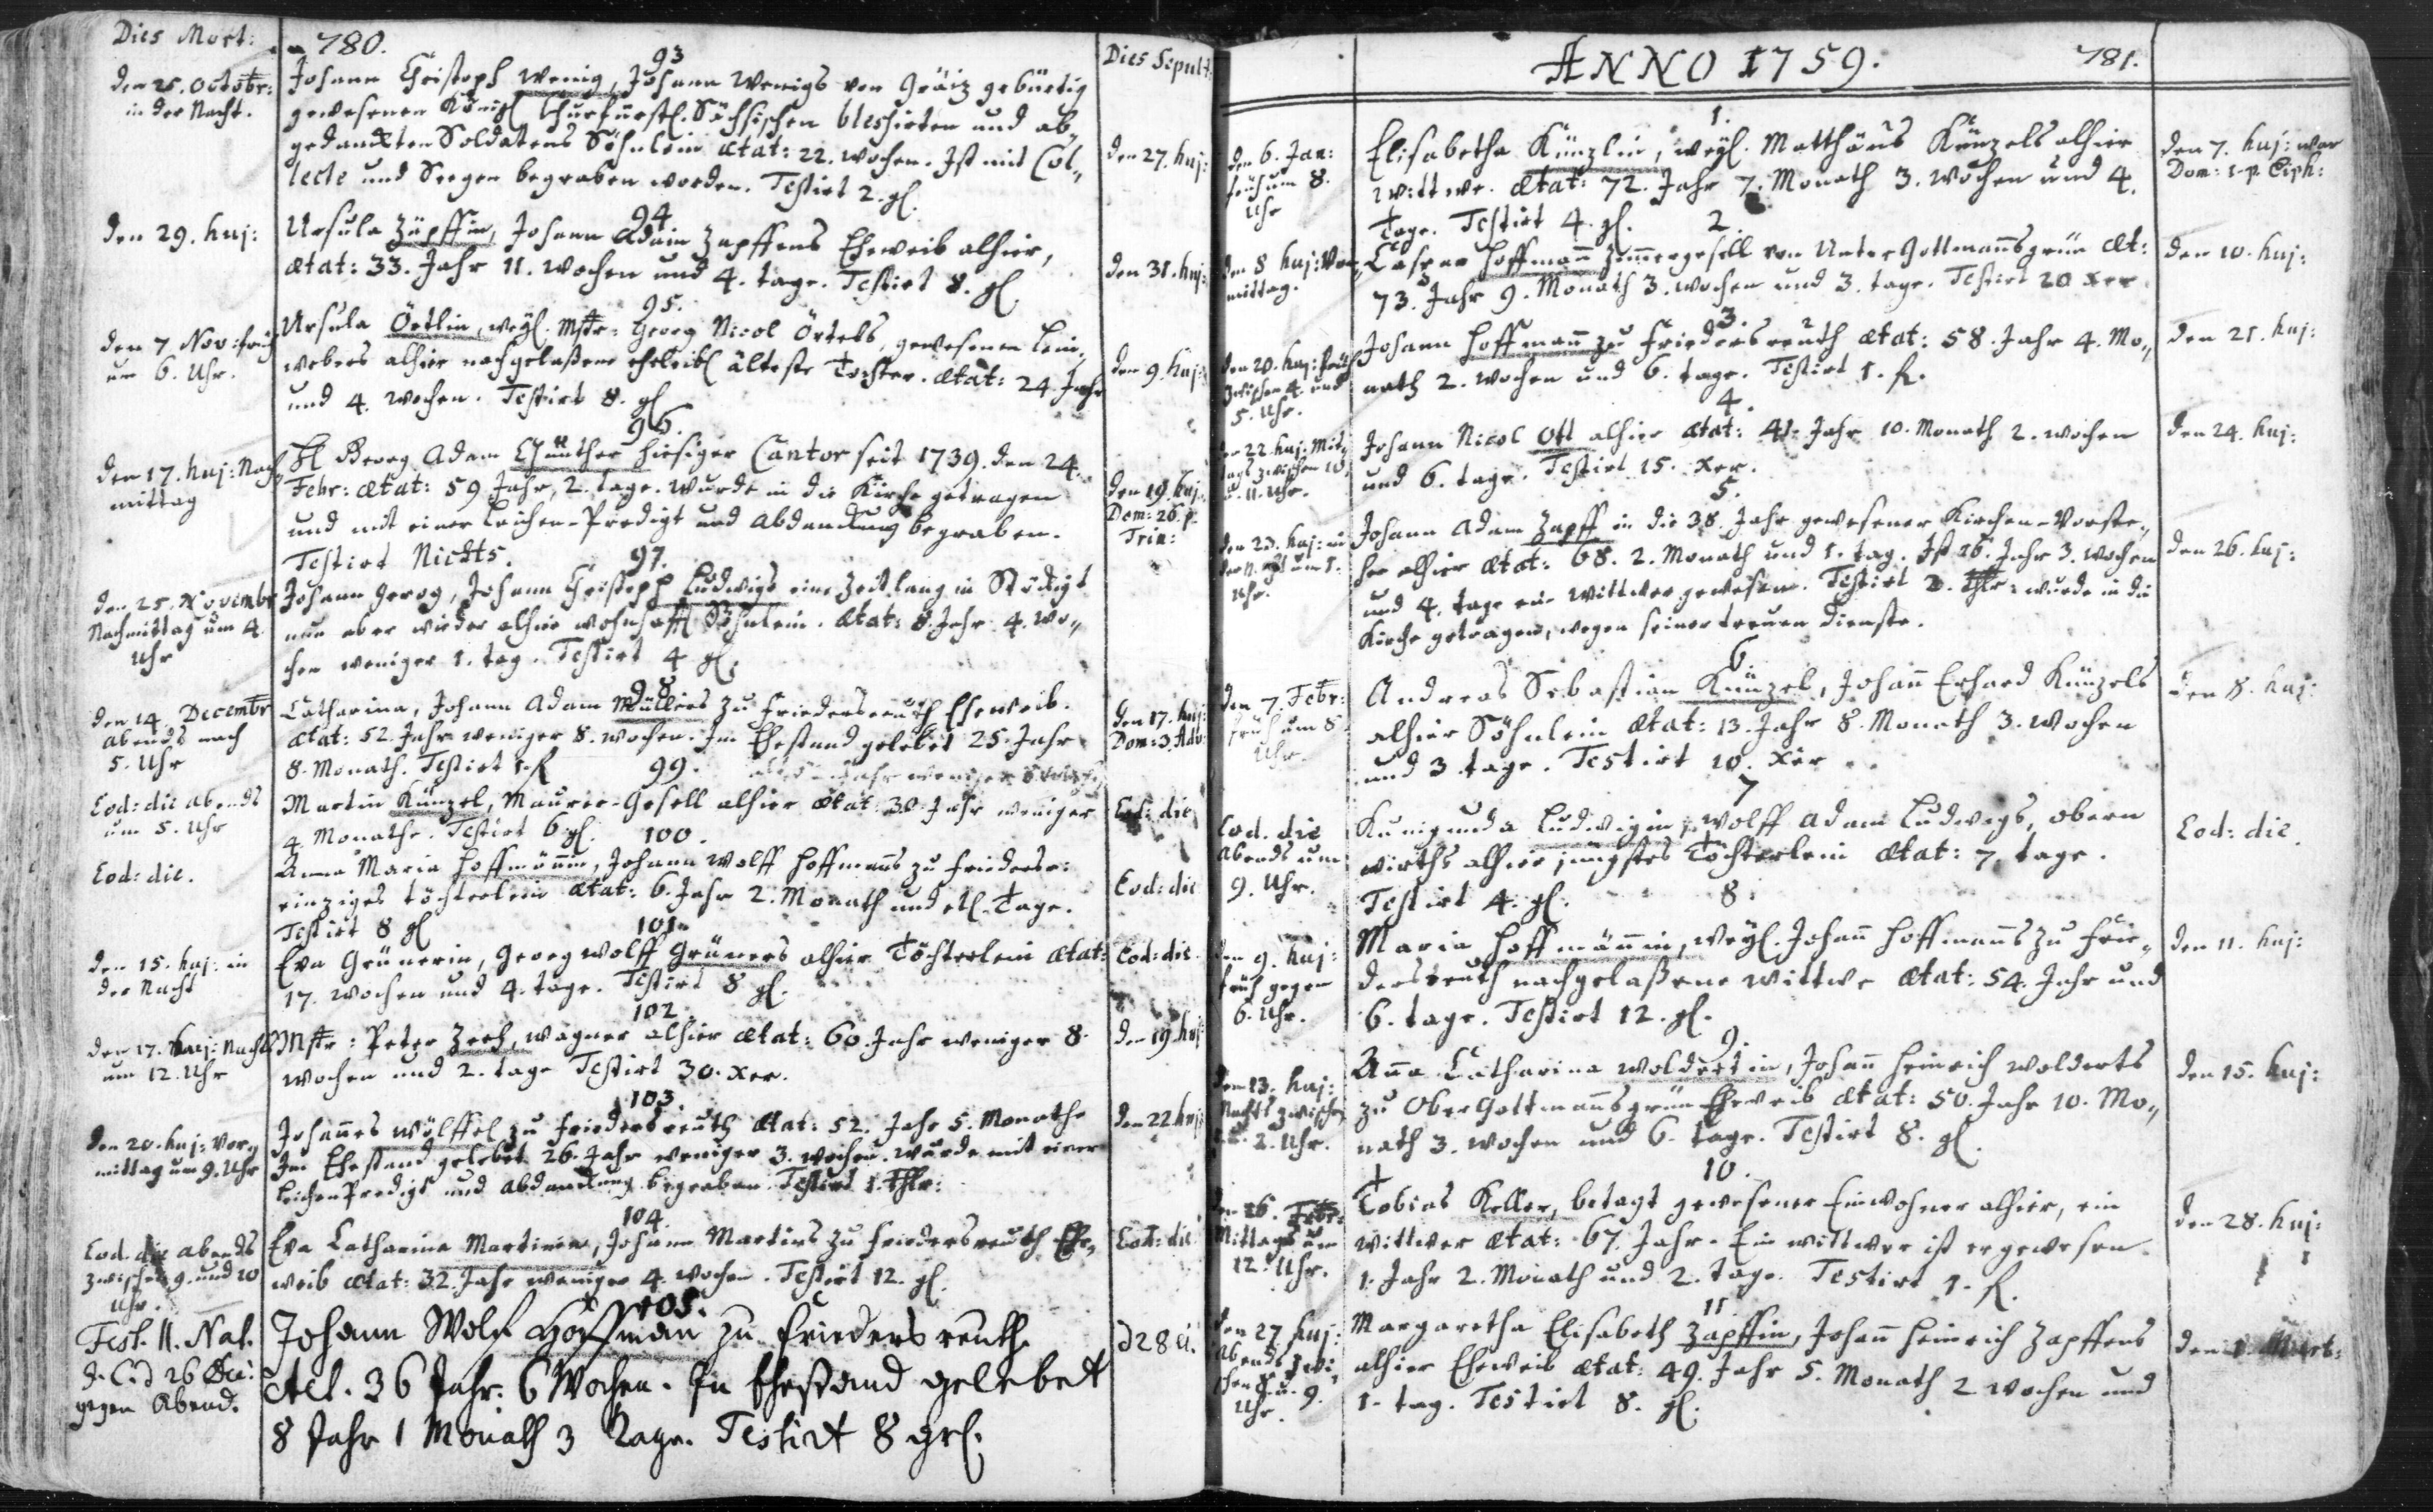 Dies Mort:
780.
Dies Sepult:
93
den 25. Octobr:
in der Nacht.
Johann Christoph Wenig, Johann Wenigs von Gräiz gebürtig
gewesenen Königl Churfürstl. Sächsischen blessirten und ab„
gedanckten Soldatens Söhnlein ætat: 22. wochen. Ist mit Col„
lecte und Seegen begraben worden. Testirt 2. gl.
den 27. huj:
94
den 29. huj:
Ursula Zäpffin, Johann Adam Zapffens Eheweib alhier,
ætat: 33. Jahr 11. wochen und 4. tage. Testirt 8. gl
den 31. huj:
95.
den 7. Nov: früh
um 6. Uhr.
Ursula Örtlin, weyl. Mstr: Georg Nicol Örtels, gewesenen Lein„
webers alhier nachgelaßene eheleibl älteste Tochter. ætat: 24. Jahr
und 4. wochen. Testirt 8. gl
den 9. huj:
96.
den 17. huj: Nach„
mittag
H Georg Adam Günther hiesiger Cantor seit 1739. den 24.
Febr: ætat: 59 Jahr, 2. tage. wurde in die Kirche getragen
und mit einer Leichen-Predigt und Abdanckung begraben.
Testirt Nichts.
den 19. huj:
Dom: 26. p.
Trin:
97.
den 25. Novembr
Nachmittag um 4.
Uhr
Johann Georg, Johann Christoph Ludwigs eine Zeit lang in Stödigt
nun aber wieder alhier wohnhafft Söhnlein. ætat: 8. Jahr 4. wo„
chen weniger 1. tag. Testirt 4 gl.
98
den 14. Decembr
abends nach
5. Uhr
Catharina, Johann Adam Müllers zu Friedersreuth Eheweib.
ætat: 52. Jahr weniger 8. wochen. Im Ehestand gelebet 25. Jahr
8. Monath. Testirt 1. fl
den 17. huj:
Dom: 3. Adv:
99.
Eod: die abends
um 5. Uhr
Martin Künzel, Maurer-Gesell alhier ætat: 30. Jahr weniger
4. Monathe. Testirt 6 gl.
Eod: die
100.
Eod: die.
Anna Maria Hoffmännin, Johann Wolff Hoffmanns zu Friedersr:
einziges töchterlein ætat: 6. Jahr 2. Monath und etl. Tage.
Testirt 8 gl
Eod: die
101.
den 15. huj: in
der Nacht
Eva Grünerin, Georg Wolff Grüners alhier Töchterlein ætat:
17. wochen und 4. tage. Testirt 8 gl.
Eod: die.
102.
den 17. huj: Nachts
um 12. Uhr
Mstr: Peter Zeeh, wagner alhier ætat: 60. Jahr weniger 8.
wochen und 2. tage Testirt 30. xer.
den 19 huj:
103.
den 20. huj: Vor„
mittag um 9. Uhr
Johannes Wölffel zu Friedersreuth ætat: 52. Jahr 5. Monathe
Im Ehestand gelebet 26. Jahr weniger 3. wochen. wurde mit einer
LeichenPredigt und Abdanckung begraben. Testirt 1. Thlr:
den 22 huj:
104.
Eod. die abends
zwischen 9. und 10
Uhr.
Eva Catharina Martinin, Johann Martins zu Friedersreuth Ehe„
weib ætat: 32. Jahr weniger 4. wochen. Testirt 12. gl.
Eod: die
105.
Fest. II. Nat.
26 Dec:
gegen Abend.
Johann Wolf Hoffman zu Friedersreuth
Aet. 36 Jahr. 6 Wochen. In Ehestand gelebet
8 Jahr 1 Monath 3 Tage. Testirt 8 grl.
d 28 ei.
ANNO 1759.
781.
1.
den 6. Jan:
früh um 8.
Uhr
Elisabetha Künzlin, weyl. Matthäus Künzels alhier
wittwe. ætat: 72. Jahr 7. Monath 3. wochen und 4.
Tage. Testirt 4. gl.
den 7. huj: war
Dom: 1. p. Eiph:
2.
den 8 huj: Vor„
mittag.
Caspar Hoffmann Zimmergesell von UnterGottmannsgrün æt:
73. Jahr 9. Monath 3. wochen und 3. tage. Testirt 20 xer
den 10. huj:
3.
den 20. huj: früh
zwischen 4. und
5. Uhr.
Johann Hoffmann zu Friedersreuth ætat: 58. Jahr 4. Mo„
nath 2. wochen und 6. tage. Testirt 1. fl.
den 21. huj:
4.
den 22. huj: Mit„
tags zwischen 10.
u. 11. Uhr.
Johann Nicol Ott alhier ætat: 41. Jahr 10. Monath 2. wochen
und 6. tage. Testirt 15. xer.
den 24. huj:
5.
den 23. huj: in
der Nacht um 1.
Uhr.
Johann Adam Zapff in die 38. Jahr gewesener Kirchen-Vorste„
her alhier ætat: 68. 2. Monath und 1. tag. Ist 26. Jahr 3. wochen
und 4. tage ein wittwer gewesen. Testirt 2. Thlr: wurde in die
Kirche getragen, wegen seiner treuen Dienste.
den 26. huj:
6.
den 7. Febr:
früh um 8.
Uhr.
Andreas Sebastian Künzel, Johann Erhard Künzels
alhier Söhnlein ætat: 13. Jahr 8. Monath 3. wochen
und 3 tage. Testirt 10. xer
den 8. huj:
7
Eod. die
Abends um
9. Uhr.
Kunigunda Ludwigin, Wolff Adam Ludwigs, obern
wirths alhier jüngstes Töchterlein ætat: 7. tage.
Testirt 4. gl.
Eod: die
8
den 9. huj:
früh gegen
6. Uhr.
Maria Hoffmännin, weyl. Johann Hoffmanns zu Frie„
dersreuth nachgelaßene wittwe ætat: 54. Jahr und
6. tage. Testirt 12. gl.
den 11. huj:
9.
den 13. huj:
Nachts zwischen
1. u. 2. Uhr.
Anna Catharina Woldertin, Johann Heinrich Wolderts
zu OberGottmannsgrün Eheweib ætat: 50. Jahr 10. Mo„
nath 3. wochen und 6. tage. Testirt 8. gl.
den 15. huj:
10.
den 26. Febr:
Mittags um
12. Uhr.
Tobias Keller, betagt gewesener Einwohner alhier, ein
wittwer ætat: 67. Jahr. Ein wittwer ist er gewesen
1. Jahr 2. Monath und 2. tage. Testirt 1. fl.
den 28. huj:
11
den 27. huj:
Abends zwi„
schen 8. u. 9.
Uhr.
Margaretha Elisabeth Zapffin, Johann Heinrich Zapffens
alhier Eheweib ætat: 49. Jahr 5. Monath 2 wochen und
1. tag. Testirt 8. gl.
den 1. Mart: